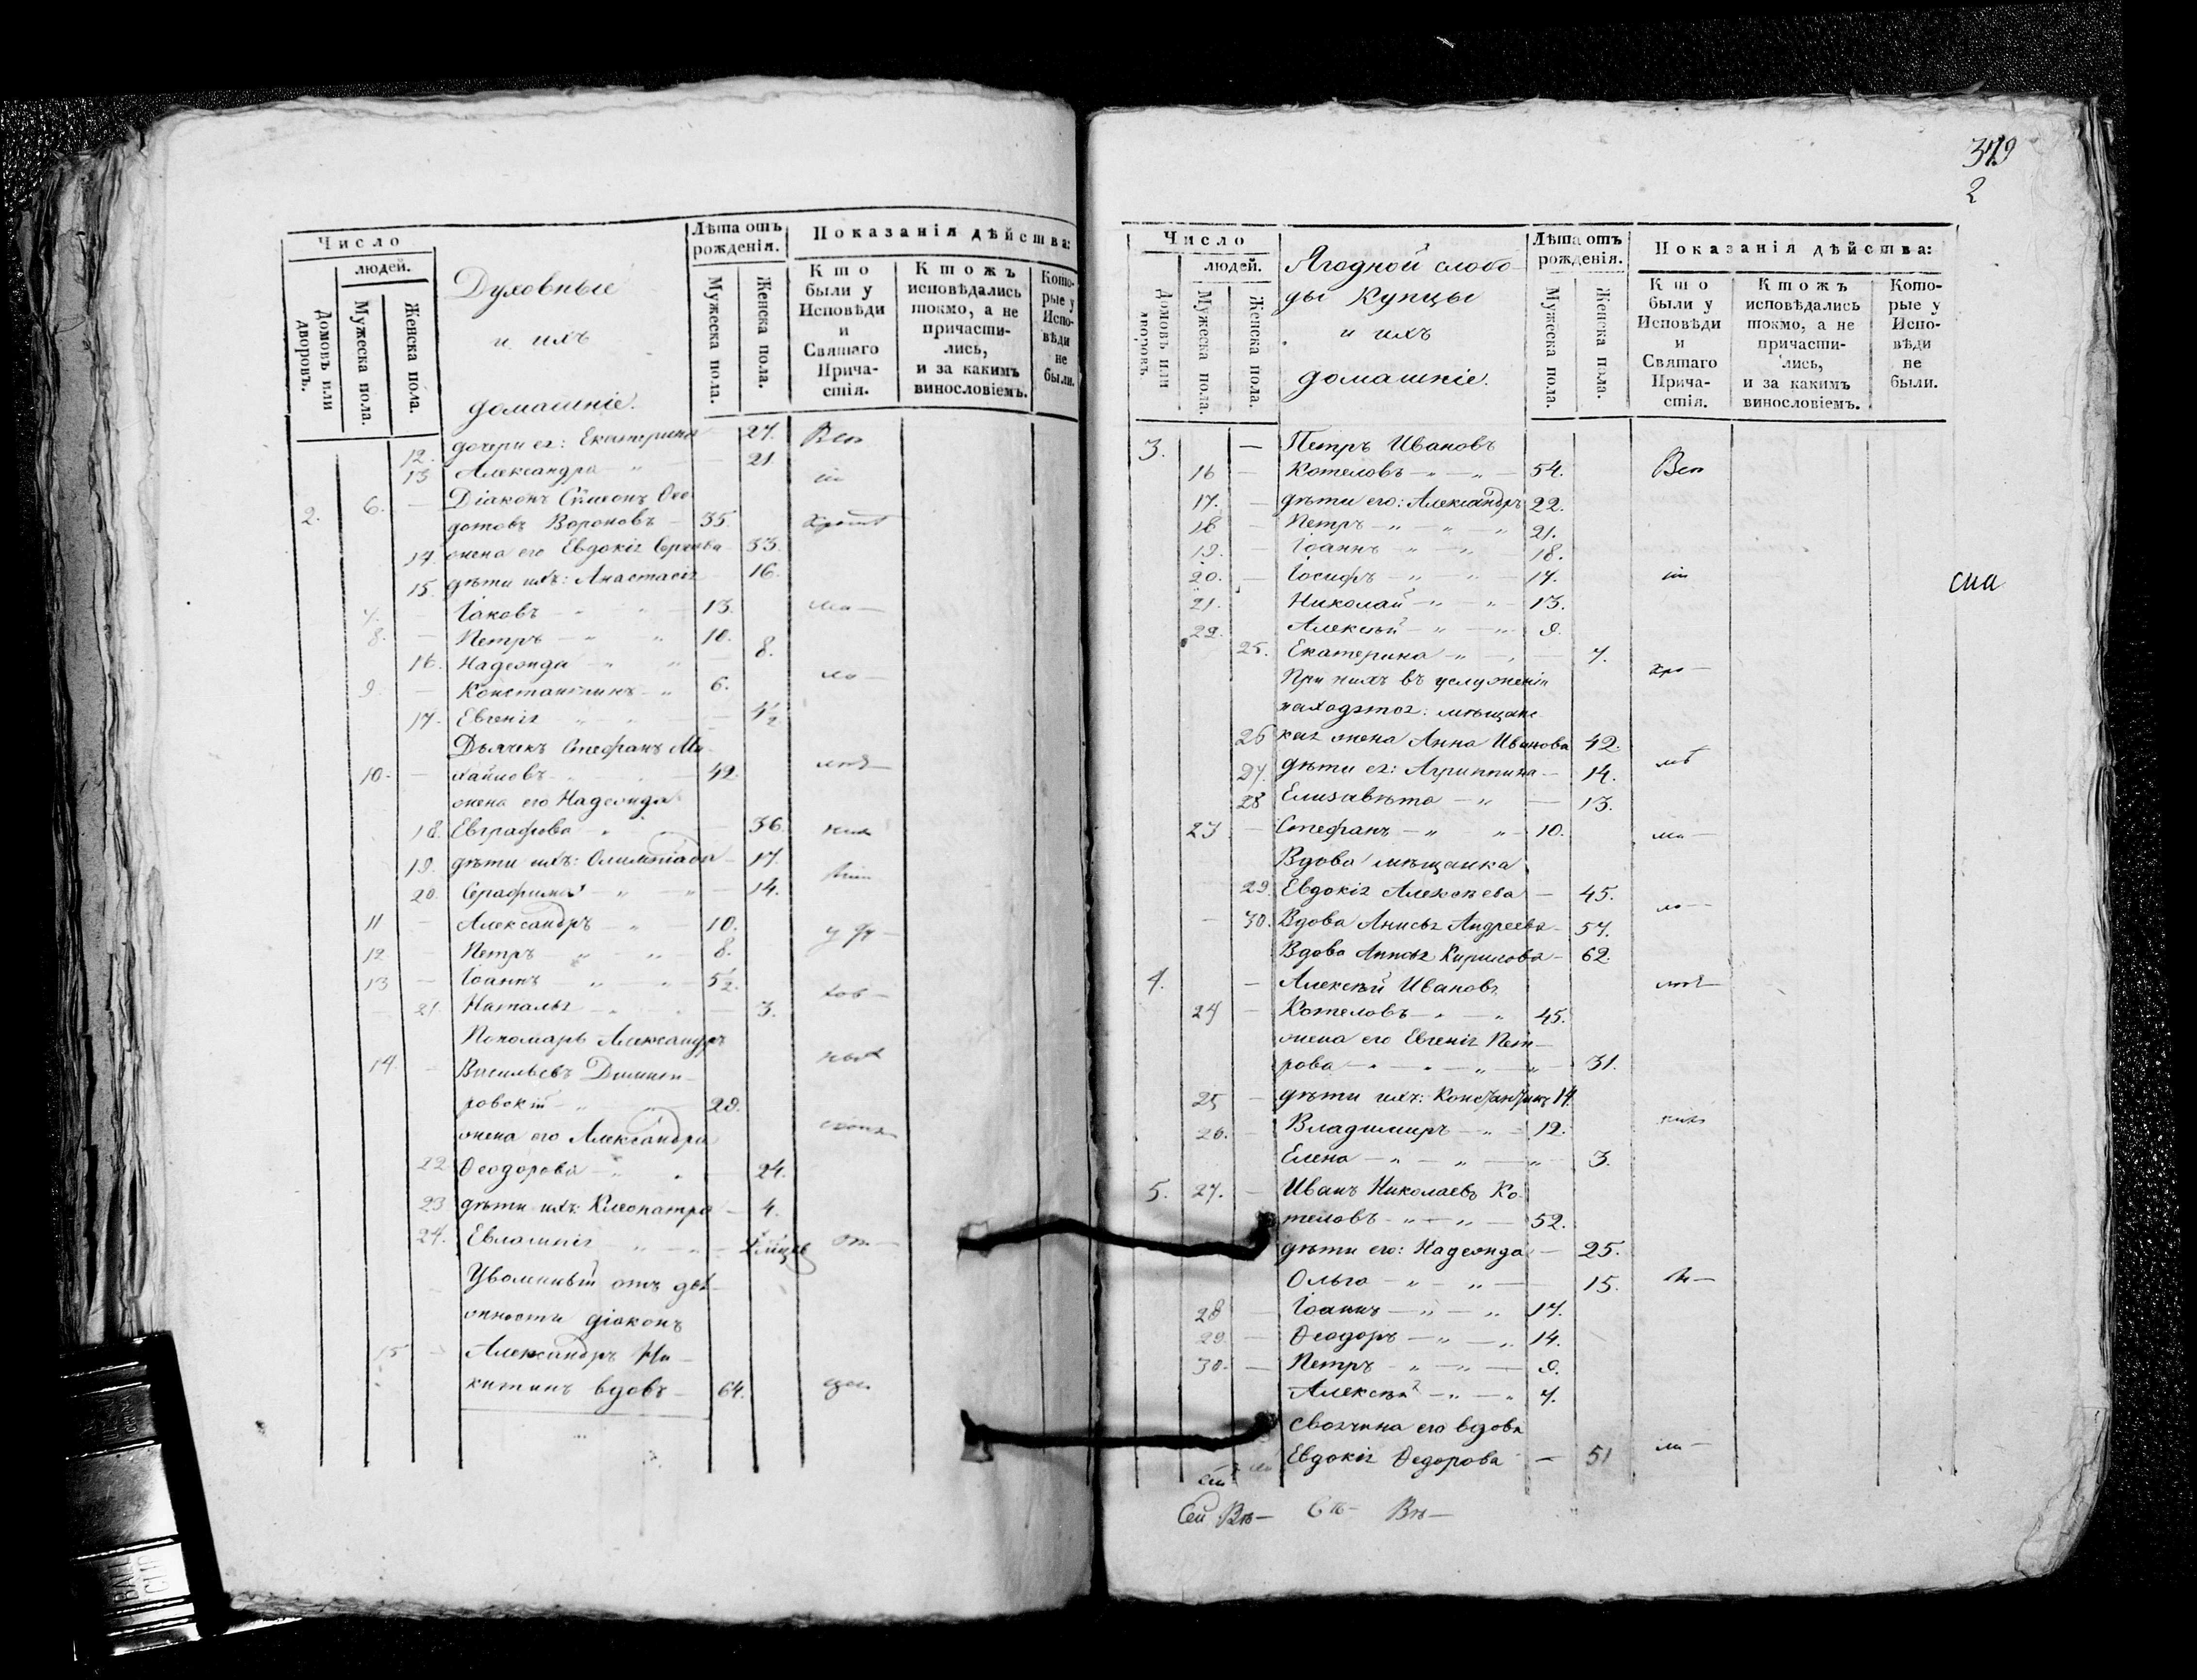 Число
людей.
Домовъ или дворовъ.
Мужеска пола.
Женска пола.
Духовные
и ихъ
домашніе.
Лѣта отъ рожденія.
Мужеска пола.
Женска пола.
Показанія дѣйства:
Кто были у Исповѣди и Святаго Прича-стія.
Ктожъ исповѣдались токмо, а не причасти-лись, и за какимъ винословіемъ.
Кото-рые у Испо-вѣди не были.
12. дочери ея: Екатерина 27. Всп
13 Александра " — 21.
2. 6. — Діаконъ Симеонъ Ѳео
дотовъ Вороновъ — 35.
14. жена его Евдокія Сергѣева — 33.
15. дѣти ихъ: Анастасія 16.
7. — Іаковъ — " " — 13.
8. — Петръ — " " 10.
16. Надежда — " " — 8.
9. — Константинъ — " 6.
17. Евгенія " " — 4½
Дьячекъ Стефанъ Ми
10. — хайловъ — 42.
жена его Надежда
18. Евграфова — " — 36.
19. дѣти ихъ: Олимпіада — 17.
20. Серафима — " — " — 14.
11 — Александръ — " — 10.
12 Петръ — " — " — 8.
13 — Іоаннъ " — " — 5½.
21. Наталья — 3.
Пономарь Александръ
14. — Васильевъ Дмит
ровскій — " 29.
жена его Александра
22 Ѳеодорова — " " 24.
23 дѣти ихъ: Клеопатра — 4.
24. Евлампія " — " —
Уволенный отъ дол
жности діаконъ
15 — Александръ Ни—
китинъ вдовъ — 64.
379
2
Число
людей.
Домовъ или дворовъ.
Мужеска пола.
Женска пола.
Ягодной слобо
ды Купцы
и ихъ
домашніе.
Лѣта отъ рожденія.
Мужеска пола.
Женска пола.
Показанія дѣйства:
Кто были у Исповѣди и Святаго Прича-стія.
Ктожъ исповѣдались токмо, а не причасти-лись, и за какимъ винословіемъ.
Кото-рые у Испо-вѣди не были.
3. — Петръ Ивановъ
16 — Котеловъ — " — " — 54. Всп
17. — дѣти его: Александръ 22.
18 — Петръ — " — " " 21.
19. — Іоаннъ — " — " — 18.
20. — Іосифъ — " — " — 17.
21. Николай — " — " — 13.
22. Алексѣй — " — " — 9.
25. Екатерина — " — 7.
При нихъ въ услуженіи
находятся: мѣщанс
26 кая жена Анна Иванова 42.
27. дѣти ея: Агриппина — 14.
28 Елизавѣта — " — 13.
23 — Стефанъ — " " — 10.
Вдова мѣщанка
29. Евдокія Алексѣева — 45.
30. Вдова Анисья Андреева — 57.
Вдова Анисья Кирилова — 62.
4. — Алексѣй Ивановъ
24 — Котеловъ — " — " 45.
жена его Евгенія Пет—
рова — " — " — 31.
25 — дѣти ихъ: Константинъ 14.
26. — Владимиръ — " — 12.
Елена — " — " — " — 3.
5. 27. — Иванъ Николаевъ Ко
теловъ — " — " — 52.
дѣти его: Надежда — 25.
Ольга — " — " — 15.
28 — Іоаннъ — " — " 17.
29. — Ѳеодоръ — " — " 14.
30. — Петръ — " — " — 9.
Алексѣй — " — " 7.
своячина его вдова
Евдокія Ѳедорова — 51
Сей